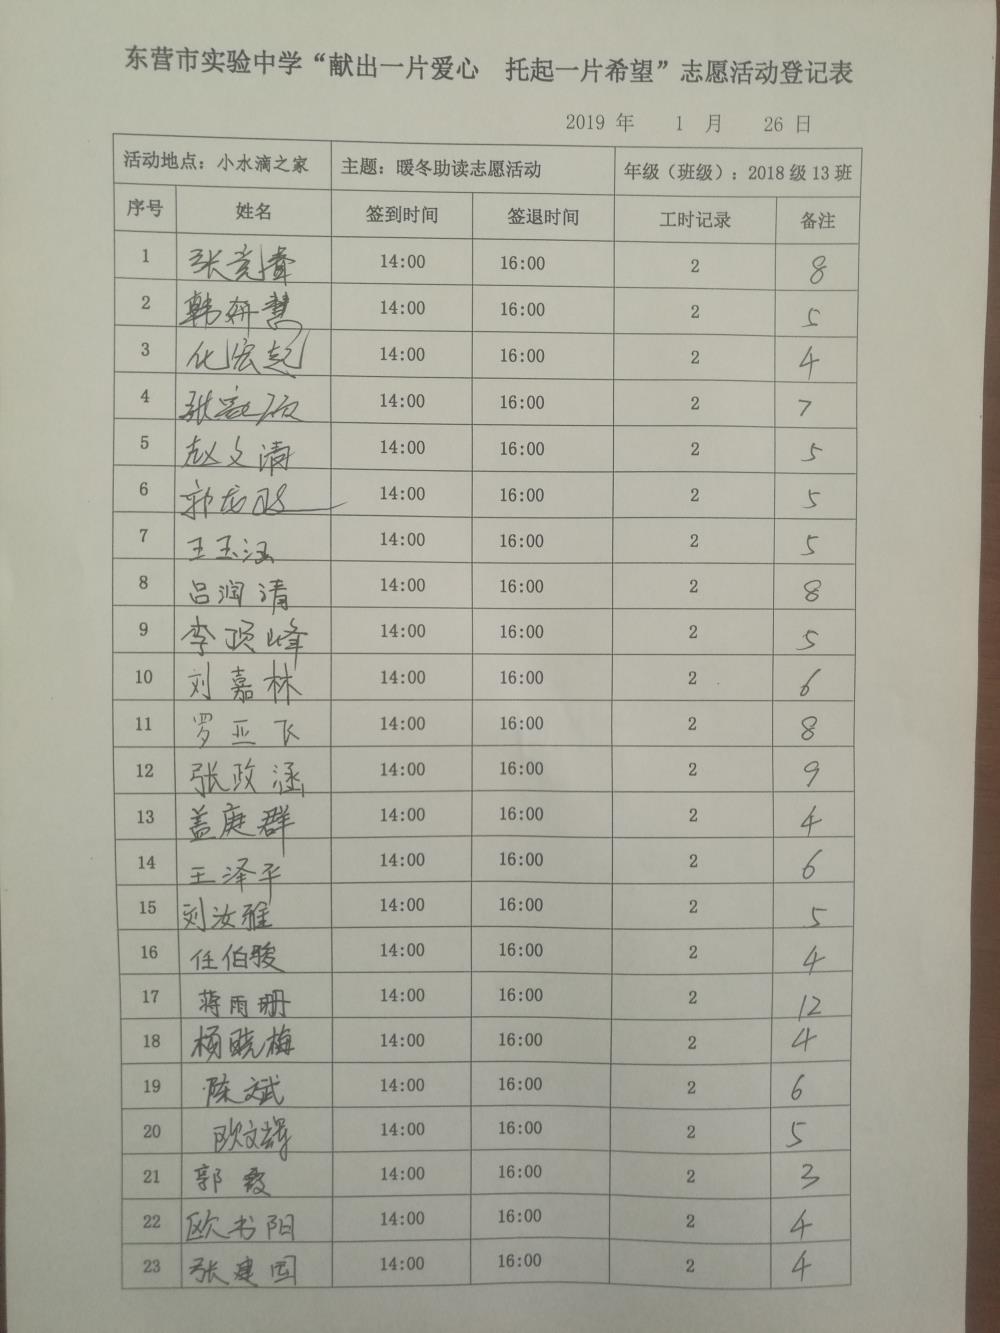 东营市实验中学“献出一片爱心 托起一片希望”志愿活动登记表
2019 年 1 月 26 日
活动地点：小水滴之家 主题：暖冬助读志愿活动 年级（班级）：2018 级 13 班
序号 姓名 签到时间 签退时间 工时记录 备注
1 张竞 14:00 16:00 2 8
2 韩妍慧 14:00 16:00 2 5
3 化宏起 14:00 16:00 2 4
4 张 14:00 16:00 2 7
5 赵文清 14:00 16:00 2 5
6 郭龙 14:00 16:00 2 5
7 王玉涵 14:00 16:00 2 5
8 吕润清 14:00 16:00 2 8
9 李顶峰 14:00 16:00 2 5
10 刘嘉林 14:00 16:00 2 6
11 罗亚飞 14:00 16:00 2 8
12 张政涵 14:00 16:00 2 9
13 盖庭群 14:00 16:00 2 4
14 王泽平 14:00 16:00 2 6
15 刘汝雅 14:00 16:00 2 5
16 任伯骏 14:00 16:00 2 4
17 蒋雨珊 14:00 16:00 2 12
18 杨晓梅 14:00 16:00 2 4
19 陈斌 14:00 16:00 2 6
20 欧文 14:00 16:00 2 5
21 郭霞 14:00 16:00 2 3
22 欧书阳 14:00 16:00 2 4
23 张建国 14:00 16:00 2 4